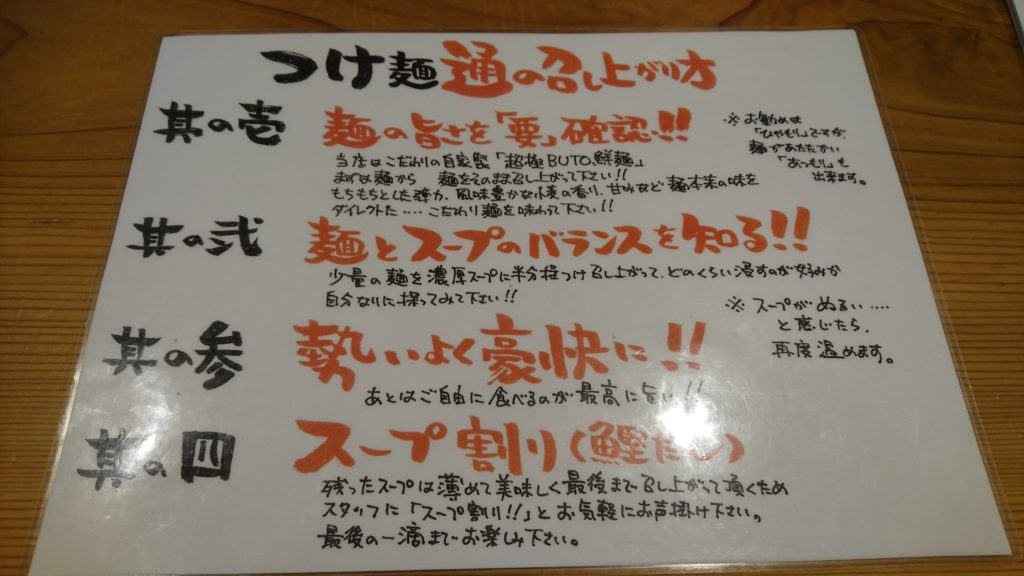 つけ麺 通の召し上がり方
其の壱 麺の旨さを「要」確認!!
※お勧めは
「ひやもり」ですが、
麺があたたかい
「あつもり」も
出来ます。
当店はこだわりの自家製「超極BUTO鮮麺」
まずは麺から 麺をそのまま召し上がって下さい!!
もちもちとした弾力、風味豊かな小麦の香り、甘みなど 麺本来の味を
ダイレクトに‥‥こだわり麺を味わって下さい!!
其の弐 麺とスープのバランスを知る!!
少量の麺を濃厚スープに半分程つけ召し上がって、どのくらい浸すのが好みか
自分なりに探ってみて下さい!!
※スープがぬるい‥‥
と感じたら、
再度温めます。
其の参 勢いよく豪快に!!
あとはご自由に食べるのが最高に旨い!!
其の四 スープ割り(鰹だし)
残ったスープは薄めて美味しく最後まで召し上がって頂くため
スタッフに「スープ割り!!」とお気軽にお声掛け下さい。
最後の一滴までお楽しみ下さい。